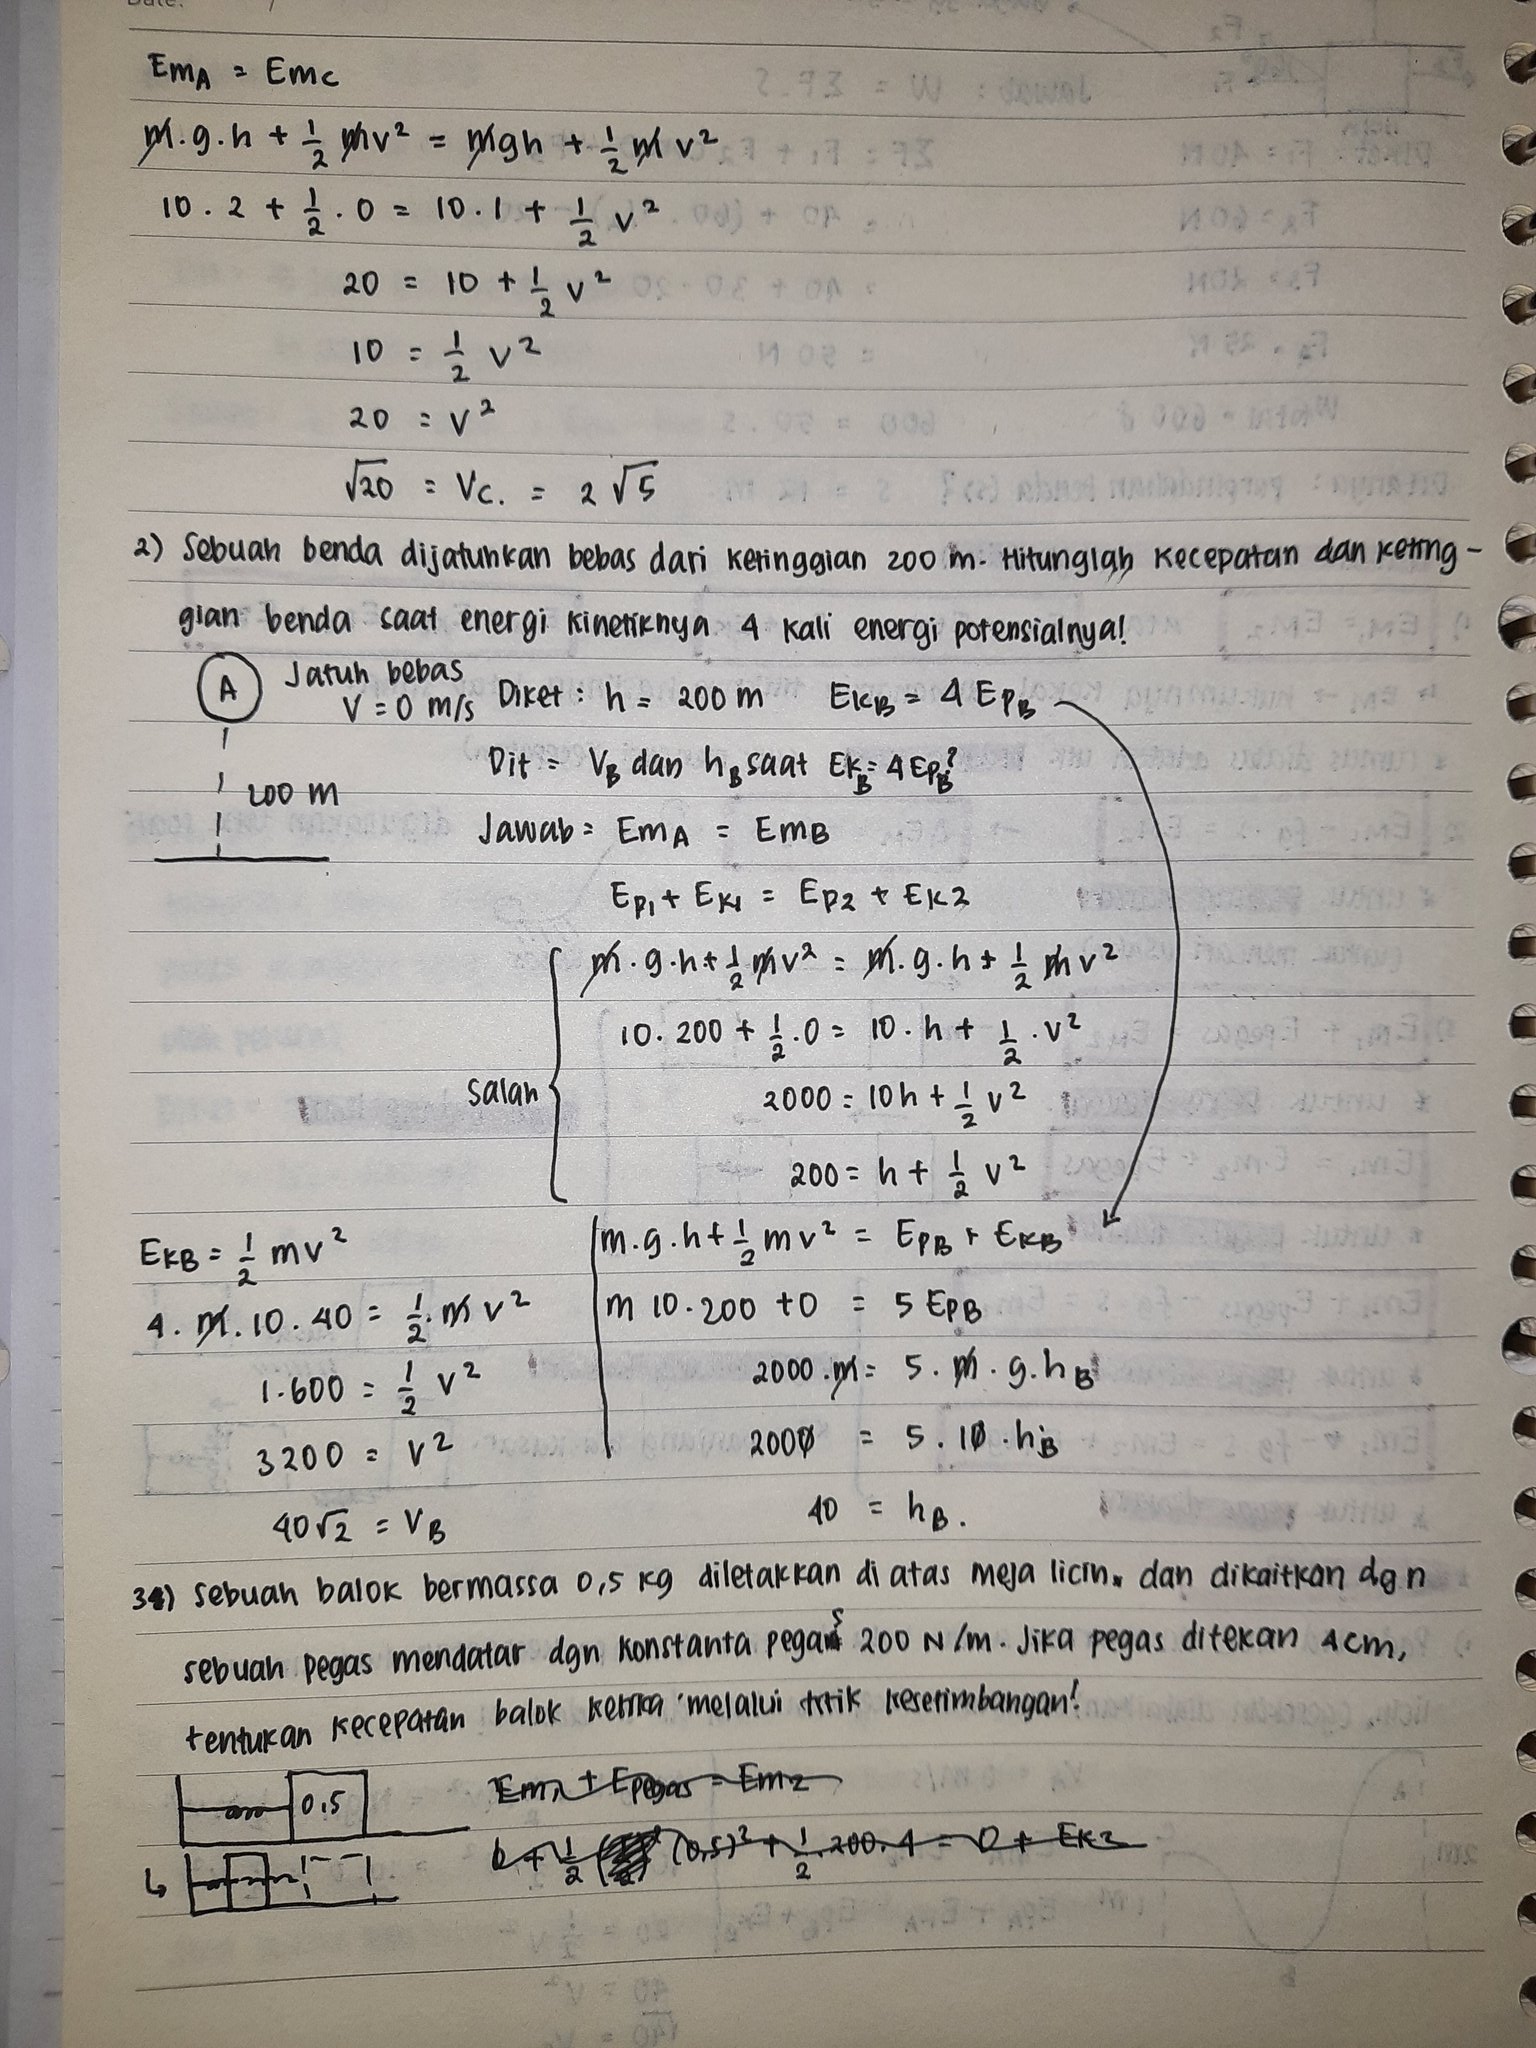 Date:
EmA = Emc
m.g.h + 1/2 mv² = mgh + 1/2 m v²
10 . 2 + 1/2 . 0 = 10 . 1 + 1/2 v²
20 = 10 + 1/2 v²
10 = 1/2 v²
20 = v²
√20 = Vc. = 2 √5
2) Sebuah benda dijatuhkan bebas dari ketinggian 200 m. Hitunglah kecepatan dan keting-
gian benda saat energi kinetiknya 4 kali energi potensialnya!
A Jatuh bebas
V = 0 m/s Diket : h = 200 m EKB = 4 EPB
Dit = VB dan hB saat EKB = 4 EPB?
200 m
Jawab = EmA = EmB
Ep1 + Ek1 = Ep2 + Ek2
m.g.h + 1/2 mv² = m.g.h + 1/2 mv²
10. 200 + 1/2 .0 = 10. h + 1/2 . v²
salah
2000 = 10h + 1/2 v²
200 = h + 1/2 v²
m.g.h + 1/2 mv² = EPB + EKB
m 10.200 + 0 = 5 EPB
2000.m = 5. m. g. hB
2000 = 5. 10. hB
40 = hB.
EKB = 1/2 mv²
4. m. 10. 40 = 1/2. m v²
1.600 = 1/2 v²
3200 = v²
40√2 = VB
3) Sebuah balok bermassa 0,5 kg diletakkan di atas meja licin. dan dikaitkan dgn
sebuah pegas mendatar dgn konstanta pegas 200 N/m. Jika pegas ditekan 4cm,
tentukan kecepatan balok ketika melalui titik kesetimbangan!
0,5
Em1 + Epegas = Em2
(0,5)² + 1/2 . 200. 4 = 0 + Ek2